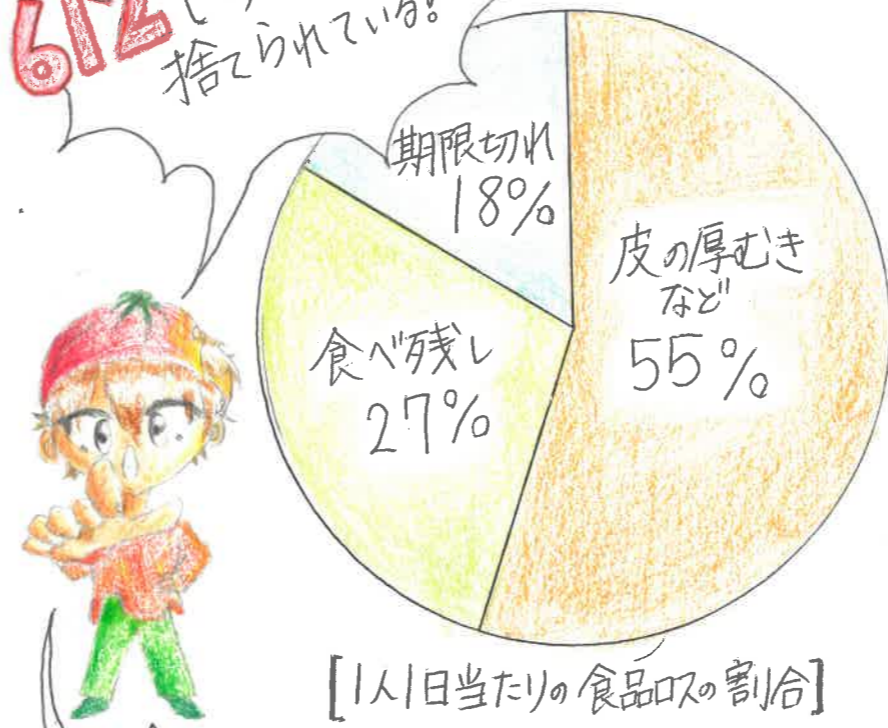 612
捨てられている!
期限切れ
18%
皮の厚むき
など
55%
食べ残し
27%
[1人1日当たりの食品ロスの割合]